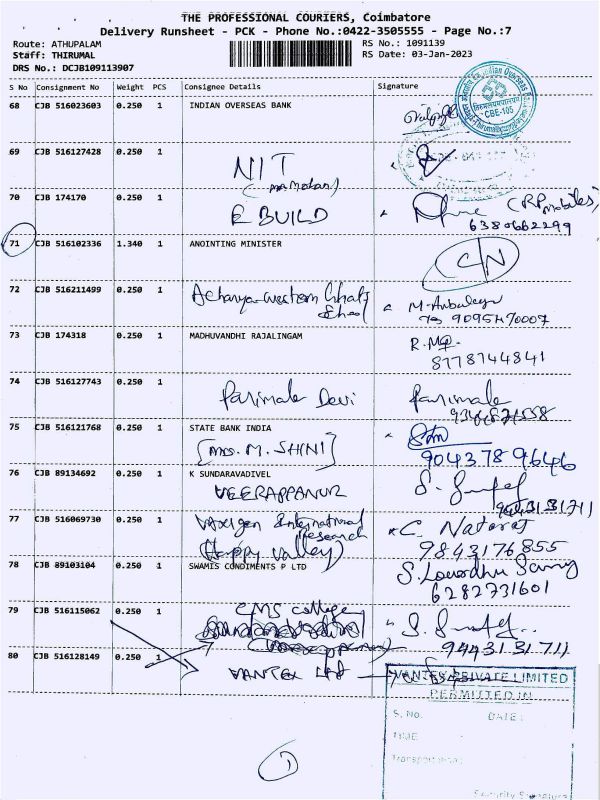 THE PROFESSIONAL COURIERS, Coimbatore
Delivery Runsheet - PCK - Phone No.:0422-3505555 - Page No.:7
Route: ATHUPALAM
Staff: THIRUMAL
DRS No.: DCJB109113907
RS No.: 1091139
RS Date: 03-Jan-2023
S No Consignment No Weight PCS Consignee Details Signature
68 CJB 516023603 0.250 1 INDIAN OVERSEAS BANK
Indian Overseas
CBE-105
69 CJB 516127428 0.250 1 NIT
70 CJB 174170 0.250 1 E BUILD (RP mobiles)
6380662299
71 CJB 516102336 1.340 1 ANOINTING MINISTER C/N
72 CJB 516211499 0.250 1 Acharya western Ghats
73 CJB 174318 0.250 1 MADHUVANDHI RAJALINGAM
8778744841
74 CJB 516127743 0.250 1 Parimala Devi Parimala
75 CJB 516121768 0.250 1 STATE BANK INDIA
[Mrs. M. SHINI]
9043789646
76 CJB 89134692 0.250 1 K SUNDARAVADIVEL
VEERAPPANUR
9443131711
77 CJB 516069730 0.250 1 International C. Nataraj
Research
(Happy Valley) 9843176855
78 CJB 89103104 0.250 1 SWAMIS CONDIMENTS P LTD
6282731601
79 CJB 516115062 0.250 1 CMS College
9443131711
80 CJB 516128149 0.250 1 VANTEX Ltd
VANTEX PRIVATE LIMITED
PERMITTED IN
S. No. DATE:
TIME
Transport
Security Signature
1